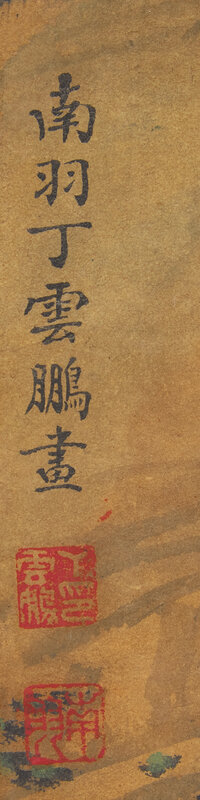 南羽丁雲鵬畫